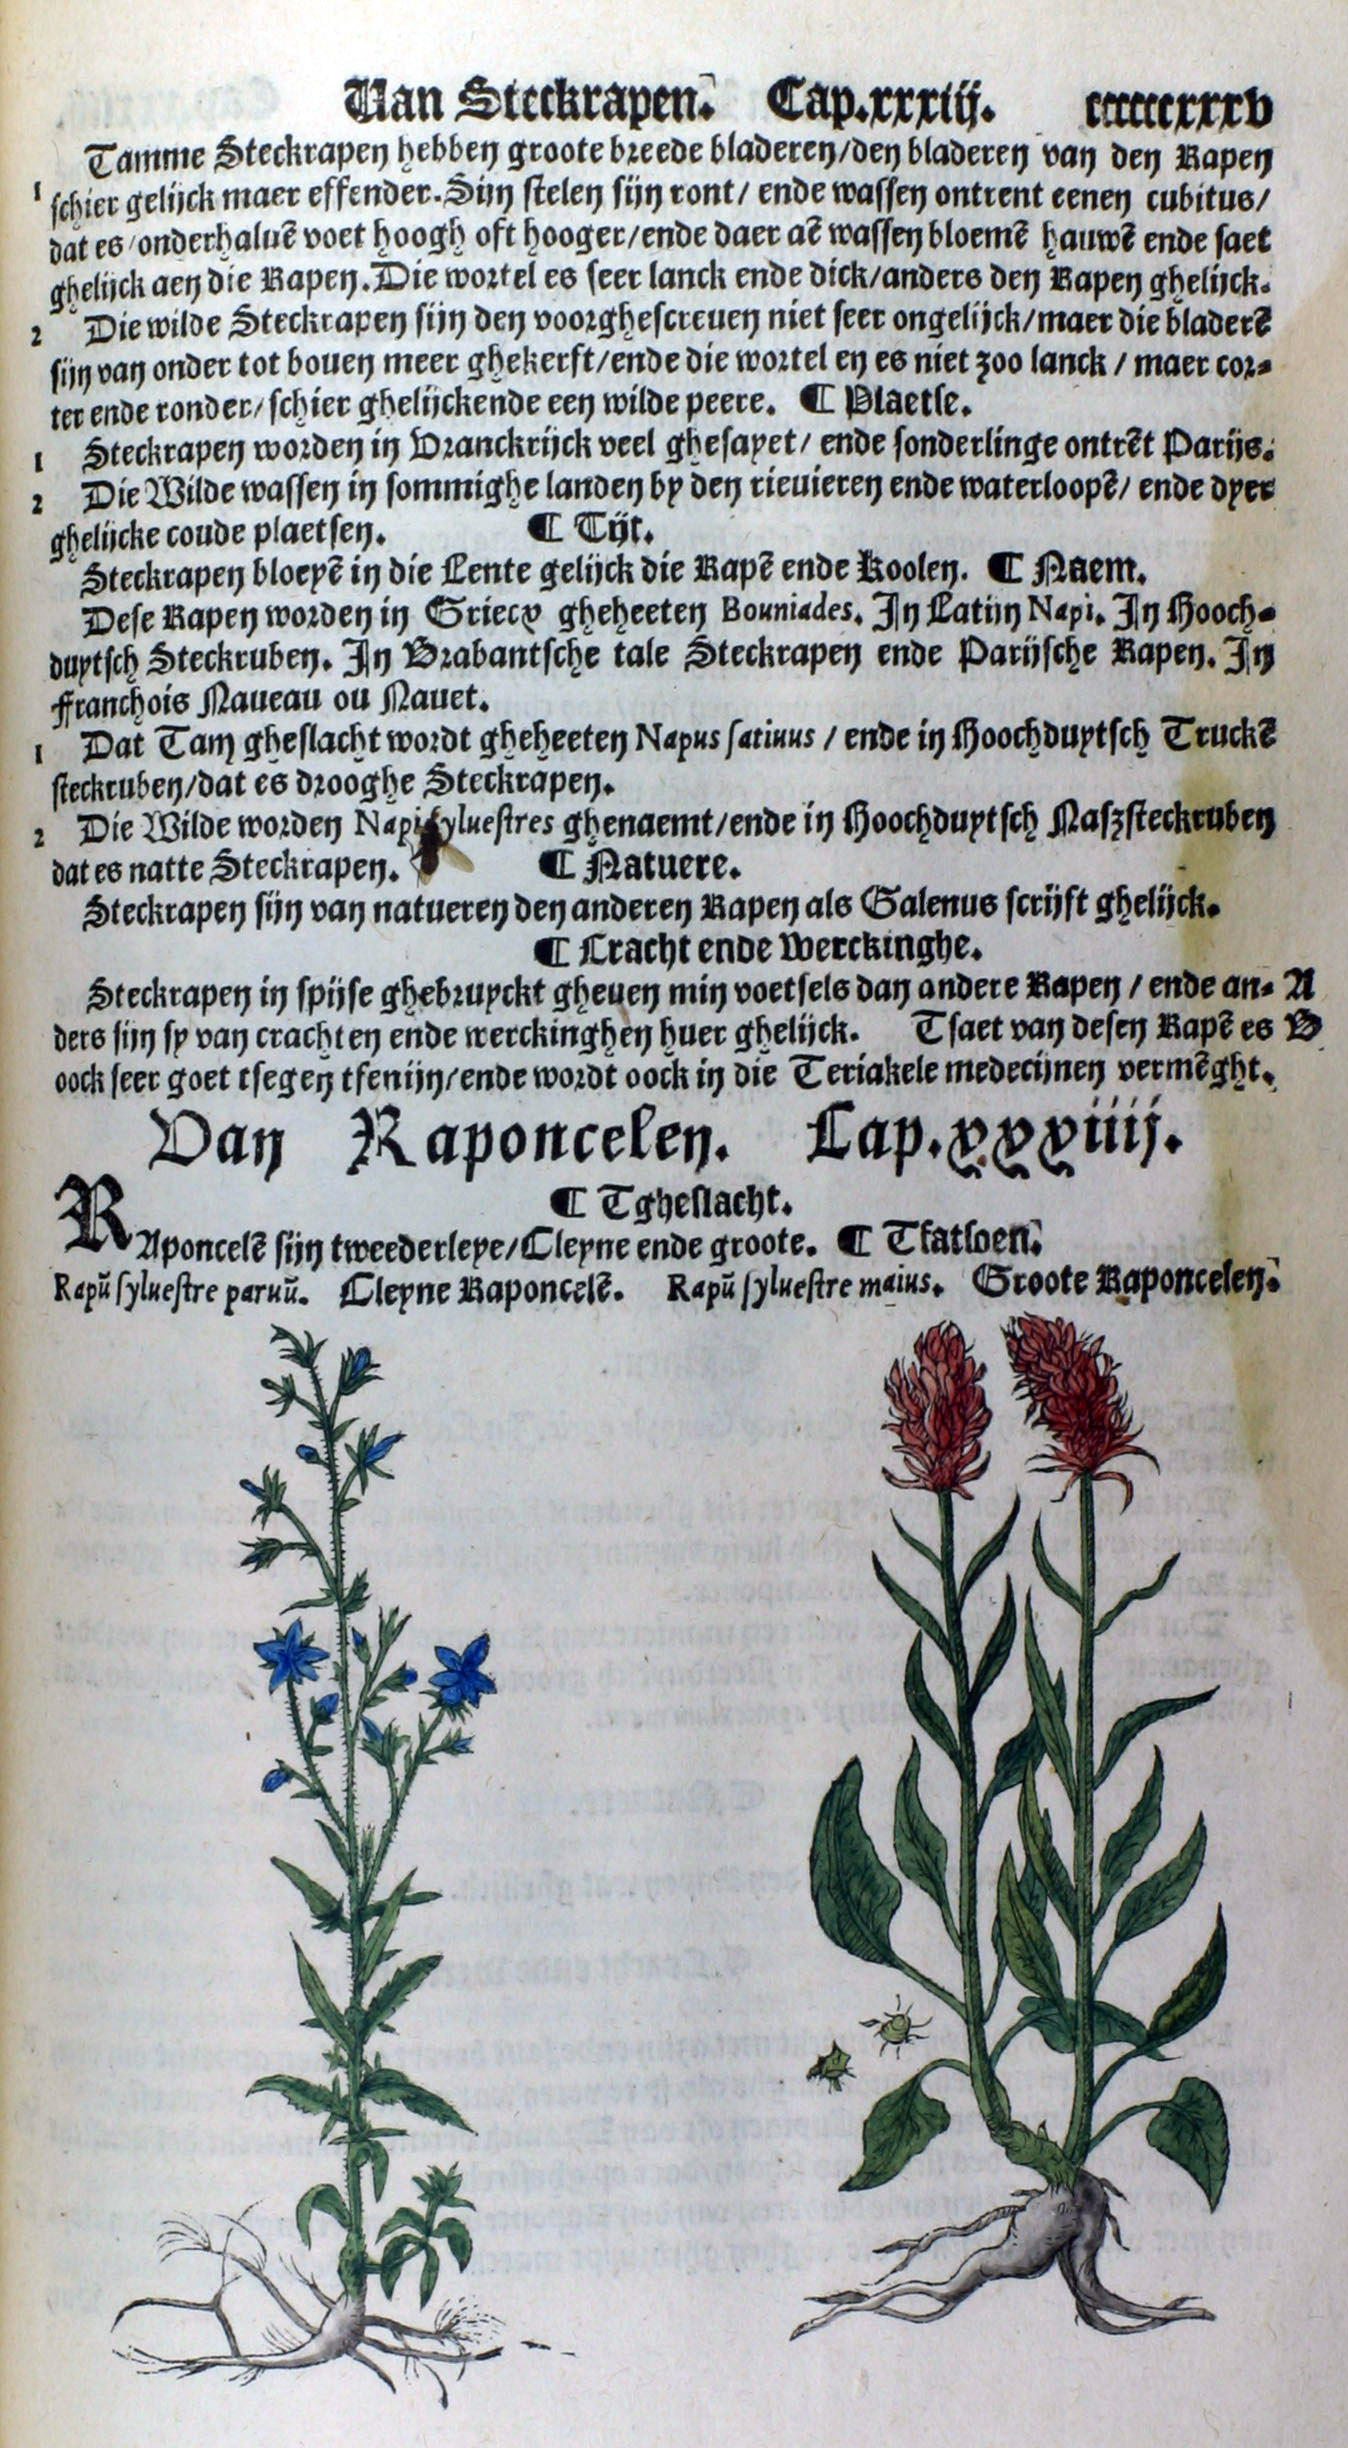 Van Steckrapen. Cap.xxxiij. ccccccxxxv
Tamme Steckrapen hebben groote breede bladeren/den bladeren van den Rapen
1 schier gelijck maer effender. Sijn stelen sijn ront/ ende wassen ontrent eenen cubitus/
dat es/onderhaluē voet hoogh oft hooger/ende daer aē wassen bloemē hauwē ende saet
ghelijck aen die Rapen. Die wortel es seer lanck ende dick/anders den Rapen ghelijck.
2 Die wilde Steckrapen sijn den voorghescreuen niet seer ongelijck/maer die bladerē
sijn van onder tot bouen meer ghekerft/ende die wortel en es niet zoo lanck/ maer cor-
ter ende ronder/schier ghelijckende een wilde peere. ¶ Plaetse.
1 Steckrapen worden in Vranckrijck veel ghesayet/ ende sonderlinge ontrēt Parijs.
2 Die Wilde wassen in sommighe landen by den rieuieren ende waterloopē/ ende dyer
ghelijcke coude plaetsen. ¶ Tijt.
Steckrapen bloeyē in die Lente gelijck die Rapē ende Koolen. ¶ Naem.
Dese Rapen worden in Griecx gheheeten Bouniades. In Latijn Napi. In Hooch-
duytsch Steckruben. In Brabantsche tale Steckrapen ende Parijsche Rapen. In
Franchois Naueau ou Nauet.
1 Dat Tam gheslacht wordt gheheeten Napus satiuus / ende in Hoochduytsch Truckē
steckruben/dat es drooghe Steckrapen.
2 Die Wilde worden Napi syluestres ghenaemt/ende in Hoochduytsch Naszsteckruben
dat es natte Steckrapen. ¶ Natuere.
Steckrapen sijn van natueren den anderen Rapen als Galenus scrijft ghelijck.
¶ Cracht ende Werckinghe.
Steckrapen in spijse ghebruyckt gheuen min voetsels dan andere Rapen / ende an- A
ders sijn sy van crachten ende werckinghen huer ghelijck. Tsaet van desen Rapē es B
oock seer goet tsegen tfenijn/ende wordt oock in die Teriakele medecijnen vermēght.
Van Raponcelen. Cap.xxxiiij.
¶ Tgheslacht.
RAponcelē sijn tweederleye/Cleyne ende groote. ¶ Tfatsoen.
Rapū syluestre paruū. Cleyne Raponcelē. Rapū syluestre maius. Groote Raponcelen.